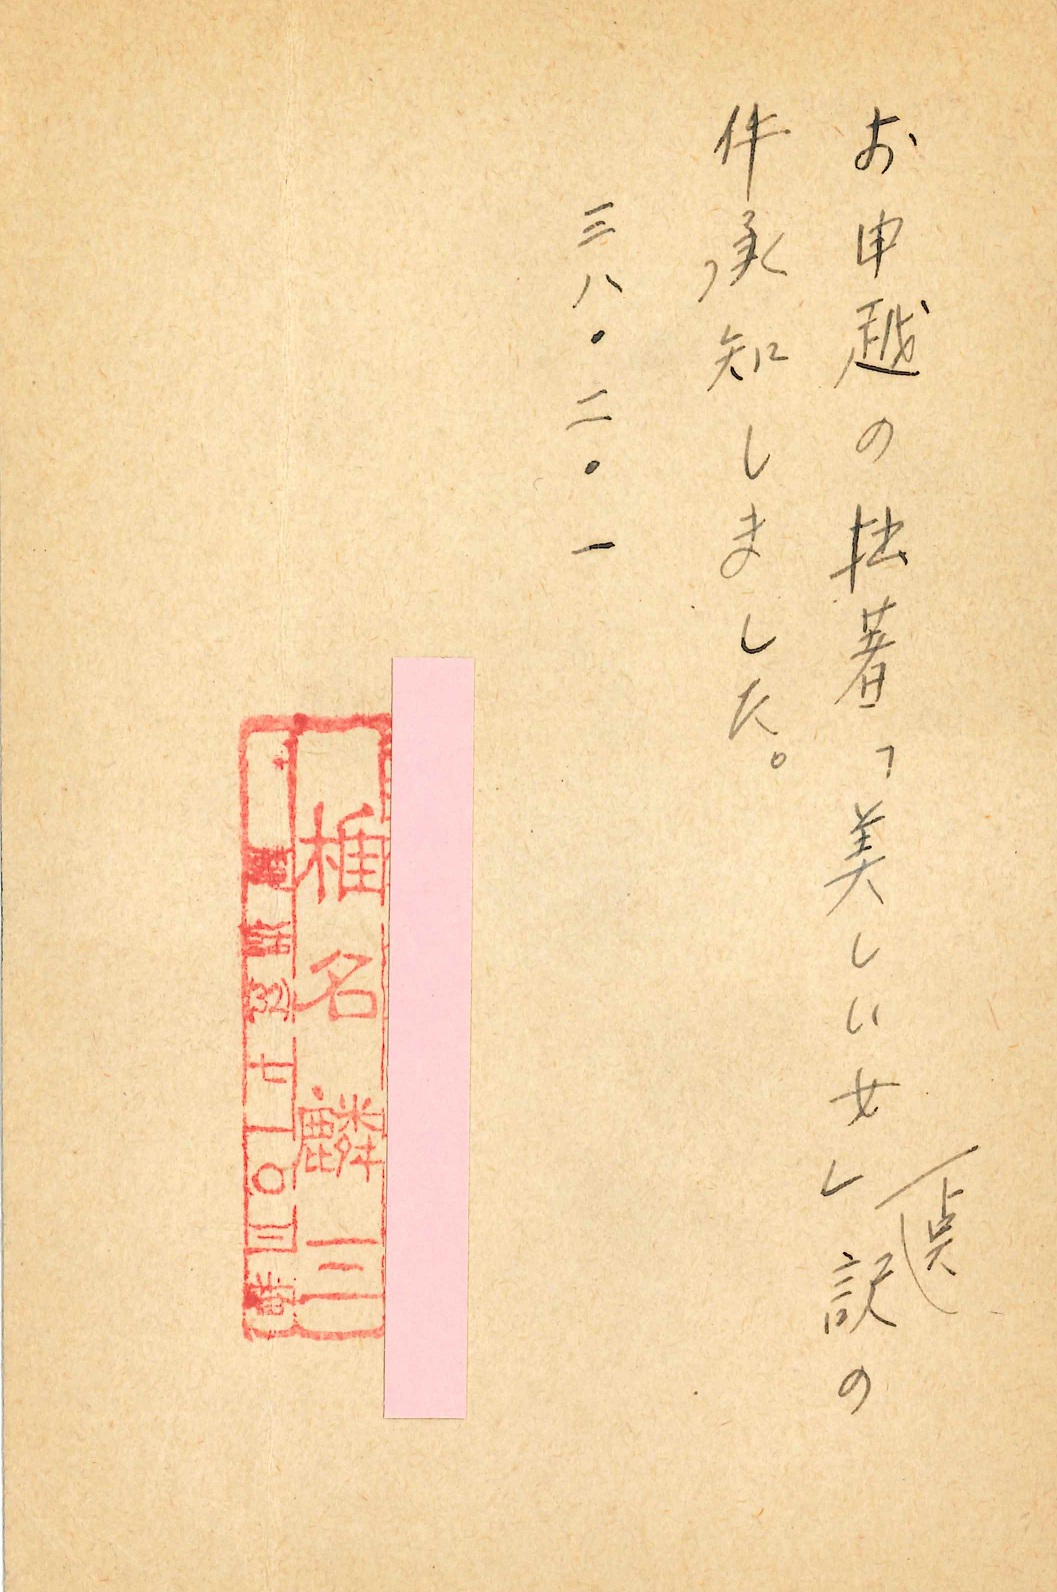 お申越の拙著「美しい女」点訳の
件承知しました。
三八・二・一
椎名麟三
電話(32)七一〇三番